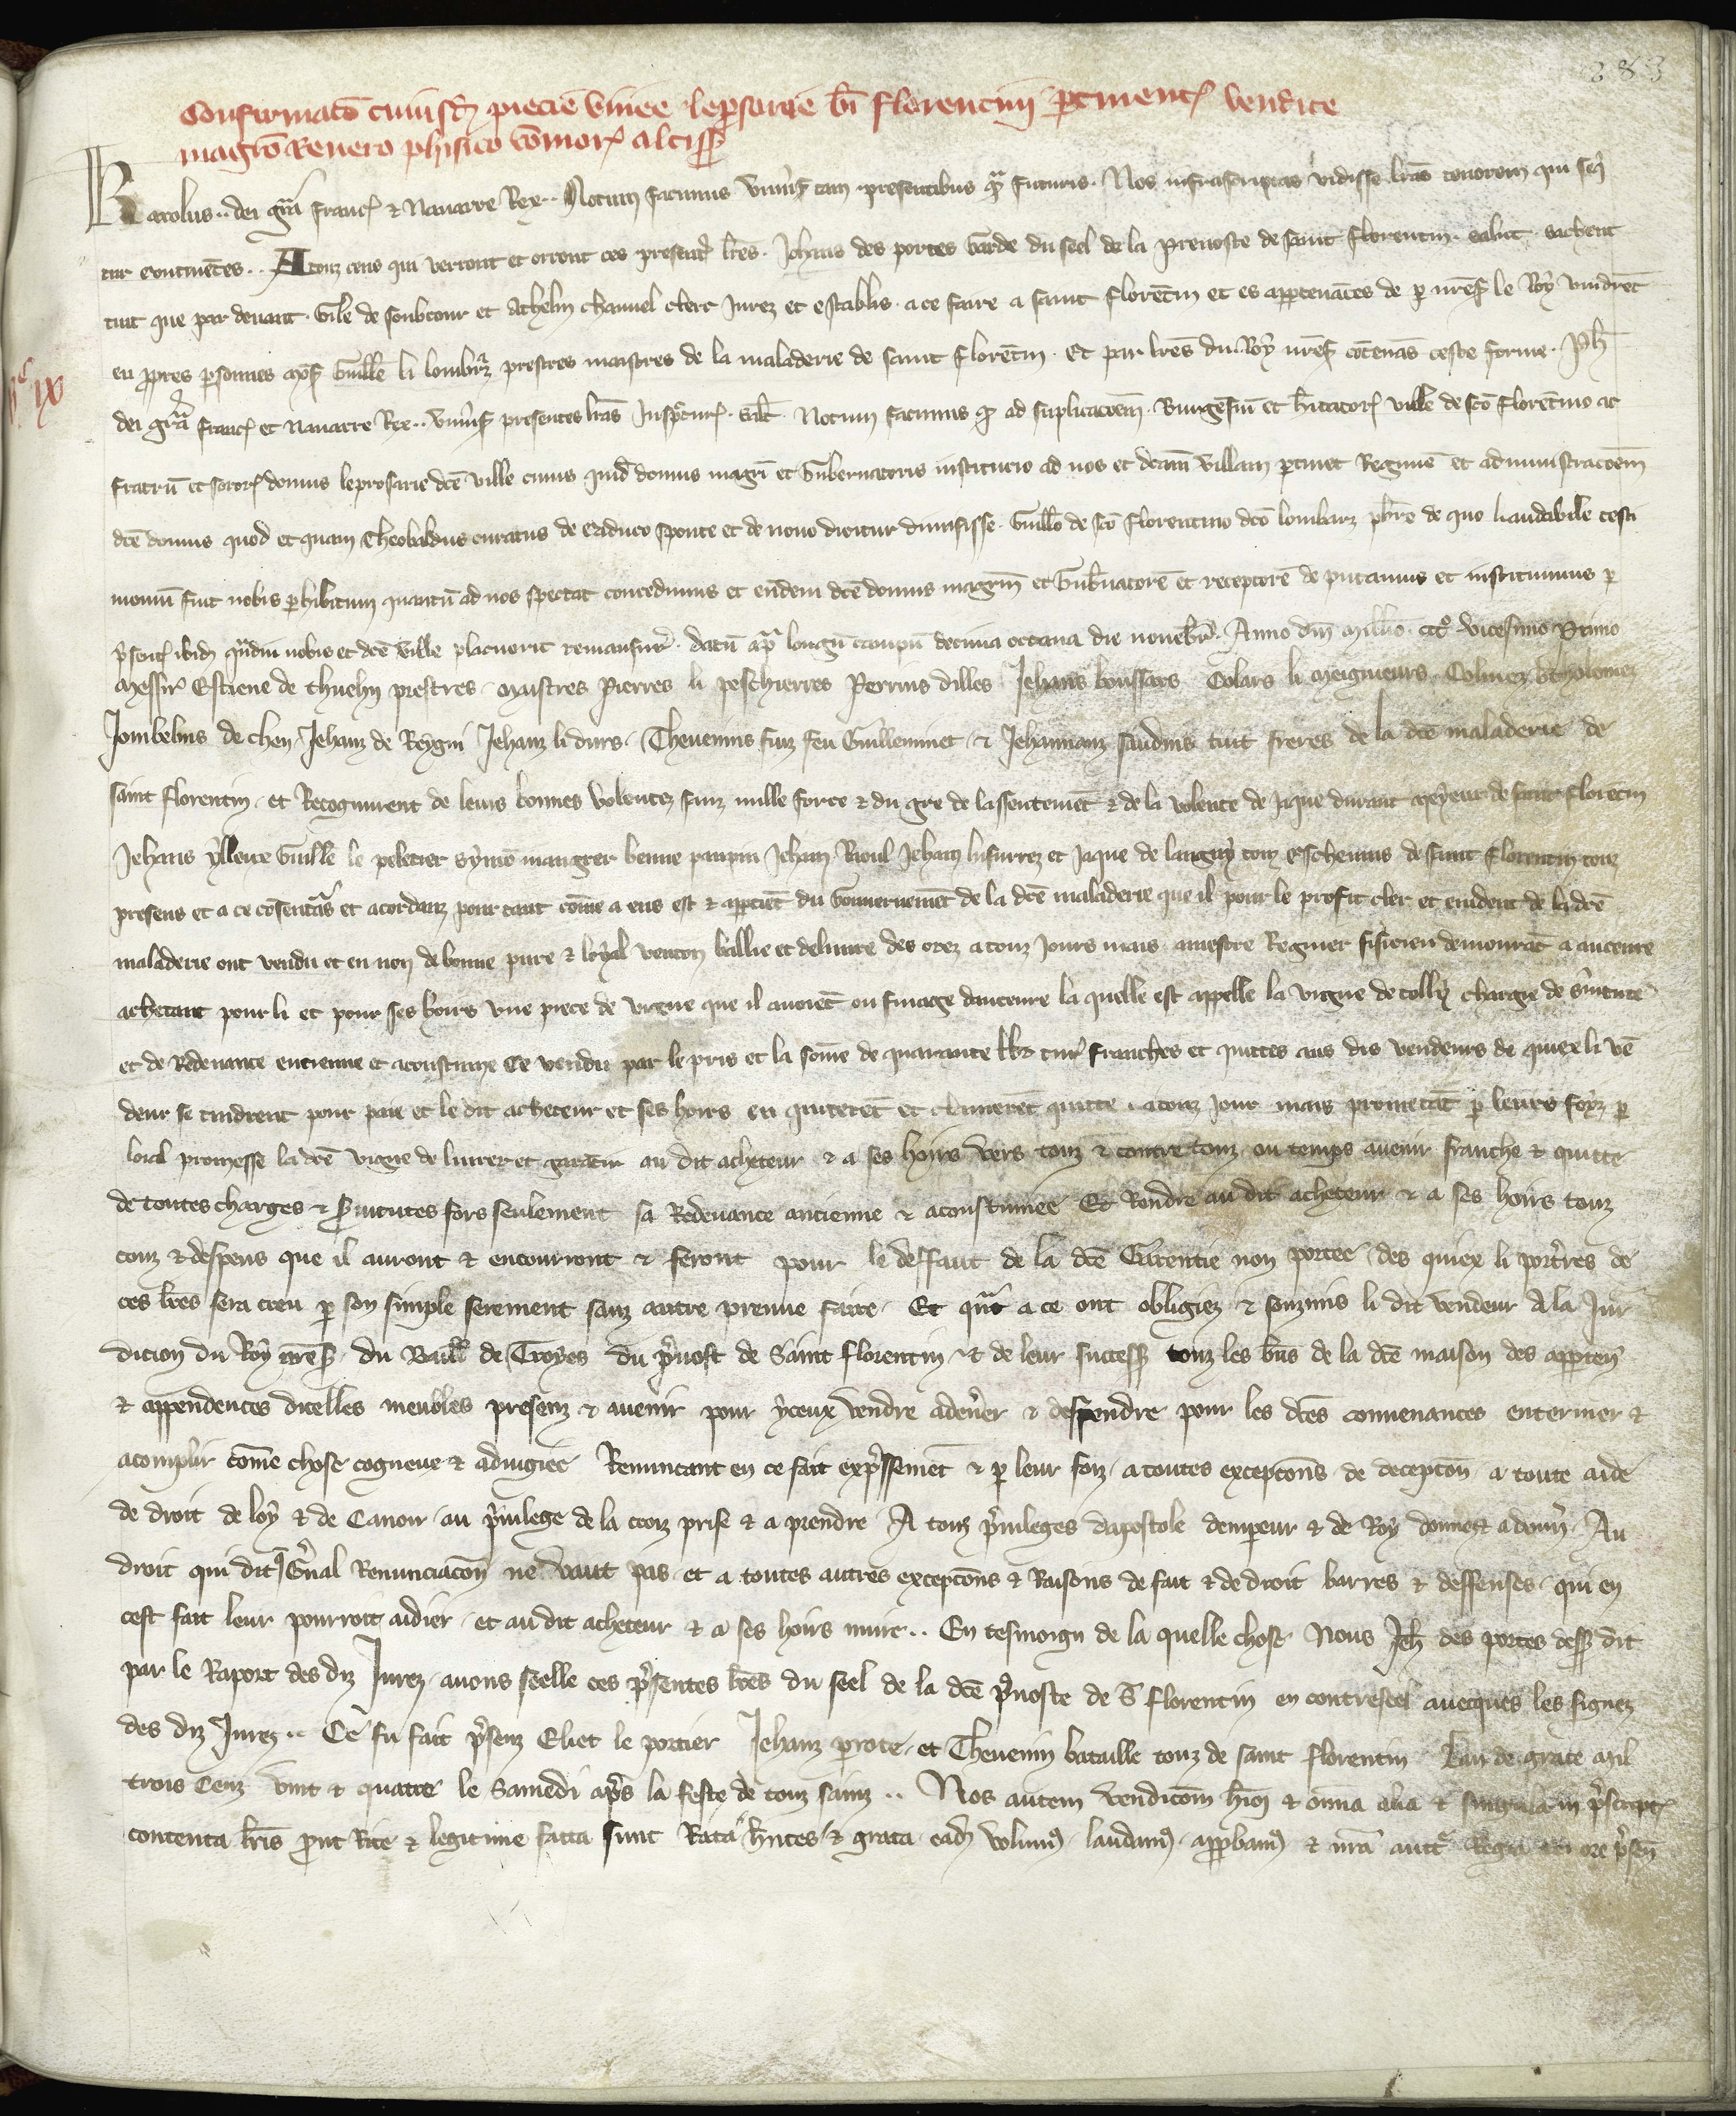 283
Confirmatō cuiusdā pecie vinee leprosarie bī Florentini ꝑtinentꝭ vendite
magrō Renero phisico cōmorꝭ
Karolus .. dei grā Francꝭ & Nauarre Rex .. Notum facimus vniusꝭ tam presentibus q̄ futuris. Nos infrascriptas vidisse lrās tenorem qui seqͥ
tur continētes .. A touz ceus qui verront et orront ces presentes lrēs. Jehans des portes Garde du seel de la preuoste de saint Florentin. salut. sachent
tuit que par deuant. Gile de soubtour et Athelin chauuel clerc Jurez et establis. a ce faire a saint Florētin et es appartenāces de ꝑ nrēsꝭ le Roy vindrēt
en ppres ꝑsonnes Mōsꝭ Guillē li lombarz prestres maistres de la maladerie de saint Florētin. Et par lrēs du Roy nrēsꝭ cōtenās ceste forme. Ph
dei grā Francꝭ et Nauarre Rex .. vniusꝭ presentes lrās Inspcturꝭ. salt. Notum facimus qꝫ ad suplicacōem. Burgensiū et hītatorꝭ ville de scō Florētino ac
fratrū et sororꝭ domus leprosarie dcē ville cuius quid domus magrī et Gubernatoris institucio ad nos et dcām villam ꝑtinet Regimē et administracōem
dcē domus quod et quam Theobaldus curatus de eaduco sponte et de nouo dicitur dimisisse. Guillō de scō Florentino dcō lombarz pbrō de quo laudabile testi
moniū fuit nobis ꝑhibitum quantū ad nos spectat concedimus et eūdem dcē domus magrm et Gubnatorē et receptorē deputamus et instituimus ꝑ
p̄sentꝭ ibid qͣdiu nobis et dcē ville placuerit remansurꝭ. datū apͣ longū campū decima octaua die nouēbrꝭ. Anno dnī Millō. ccc⁰ vicesimo Primo
Messirꝭ Estiene de thuehy prestres. Maistres Pierres li peschierres Perrins dilles Jehans boussars Colars li Meigneurs. Colinez bertholomez
Jombelins de chen. Jehanz de Reygni Jehanz li durs. Theuenins fuiz feu Guilleminet. & Jehannanz saudins tuit freres de la dcē maladerie de
saint Florentin. et Recognurent de leurs bonnes volentez sanz nulle force & du gre de lassentemēt & de la volente de Jaque durant Mayeur de saint Florētin
Jehans ylleux Guillē le peletier Symō mangier benne paupin Jehan Rioul Jehan lusurrez et Jaque de langny touz escheuins de saint Florentin touz
presens et a ce cōsentās et acordanz pour tant cōme a eus est & appctiēt du Gouuernemēt de la dcē maladerie que il pour le profit cler et euident de la dcē
maladerie ont vendu et en non de bonne pure & loyal vencon baillie et deliuree des orez a touz Jours mais. a mestre Regnier fisicien demourāt a aucerre
achetant pour li et pour ses hoirs vne piece de vigne que il auoiēt ou finage daucerre la quelle est appelle la vigne de colly chargie de suitute
et de Redeuance encienne et acoustumee Ce vendu par le pris et la sōme de quarante lbr turꝭ franches et quittes aus dis vendeurs de quiex li vē
deur se tindrent pour paie et le dit acheteur et ses hoirs en quiterēt et clamerēt quitte. a touz Jour mais prometāt ꝑ leurs foyz ꝑ
loial promesse la dcē vigne deliurer et garātir au dit acheteur & a ses hoirs vers touz & contre touz ou temps auenir franche & quitte
de toutes charges & ꝑuitutes fors seulement sa Redeuance ancienne & acoustumee Et Rendre au dit acheteur & a ses hoirs touz
couz & despens que il auront & encourront & feront pour le deffaut de la dcē Garentie non portee. des quiex li portrres de
ces lrēs sera creu ꝑ son simple serement sanz autre preuue faire. Et qͣt a ce ont obligiez & souzmis li dit vendeur A la Jur
dicion du Roy nrēsꝭ. du Baillꝭ de Troyes du p̄uost de Saint Florentin. & de leur successꝭ touz les biēs de la dcē maison des apparten
& appendences dicelles meubles presenz & auenir pour yceux vendre adenier & despendre pour les dcēs conuenances enteriner &
acomplir cōme chose cogneue & adiugiee Renuncant en ce fait expssemēt & ꝑ leur foiz. a toutes excepcōns de decepcōn a toute aide
de droit de loy & de Canon. au p̄uilege de la croiz prise & a prendre A touz p̄uileges dapostole dempeur & de Roy donnez & a donnꝭ. Au
droit qui dit Gnal Renunciacōn ne vaut pas. et a toutes autres excepcōns & Raisons de fait & de droit barres & deffenses. qui en
cest fait leur pourroit aidier. et au dit acheteur & a ses hoirs nuire .. En tesmoign de la quelle chose Nous Jeh des portes dessꝭ dit
par le Raport des diz Jurez. auons seelle ces p̄sentes lrēs du seel de la dcē p̄uoste de S Florentin en contreseel auecques les signez
des diz Jurez .. Ce fu fait p̄senz Eliet le portier Jehanz ꝑrote. et Theuenin bataille touz de saint Florentin Lan de grace Mil
trois Cenz vint & quatre le Samedi ap̄s la feste de touz sainz .. Nos autem vendicōm hīoi & omnia alia & singula in p̄scriptꝭ
contenta lrīs prout Rite & legitime facta sunt Rata hn̄tes & grata ead volumꝰ. laudamꝰ. approbamꝰ & nrā auctͤ Regia tenore p̄sen